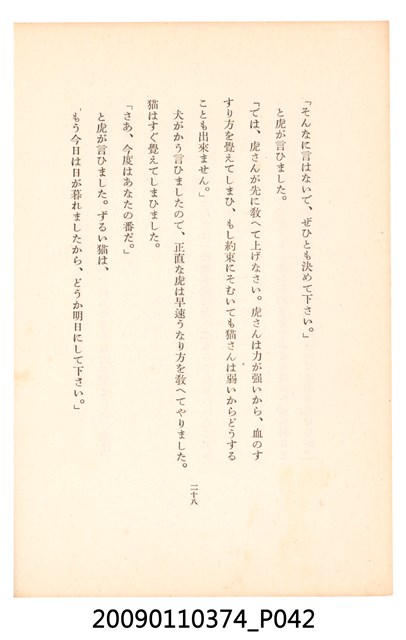 「そんなに言はないで、ぜひとも決めて下さい。」
と虎が言ひました。
「では、虎さんが先に教へて上げなさい。虎さんは力が强いから、血のす
すり方を覺えてしまひ、もし約束にそむいても猫さんは弱いからどうする
ことも出來ません。」
犬がかう言ひましたので、正直な虎は早速うなり方を教へてやりました。
猫はすぐ覺えてしまひました。
「さあ、今度はあなたの番だ。」
と虎が言ひました。ずるい猫は、
「もう今日は日が暮れましたから、どうか明日にして下さい。」
二十八
20090110374_P042